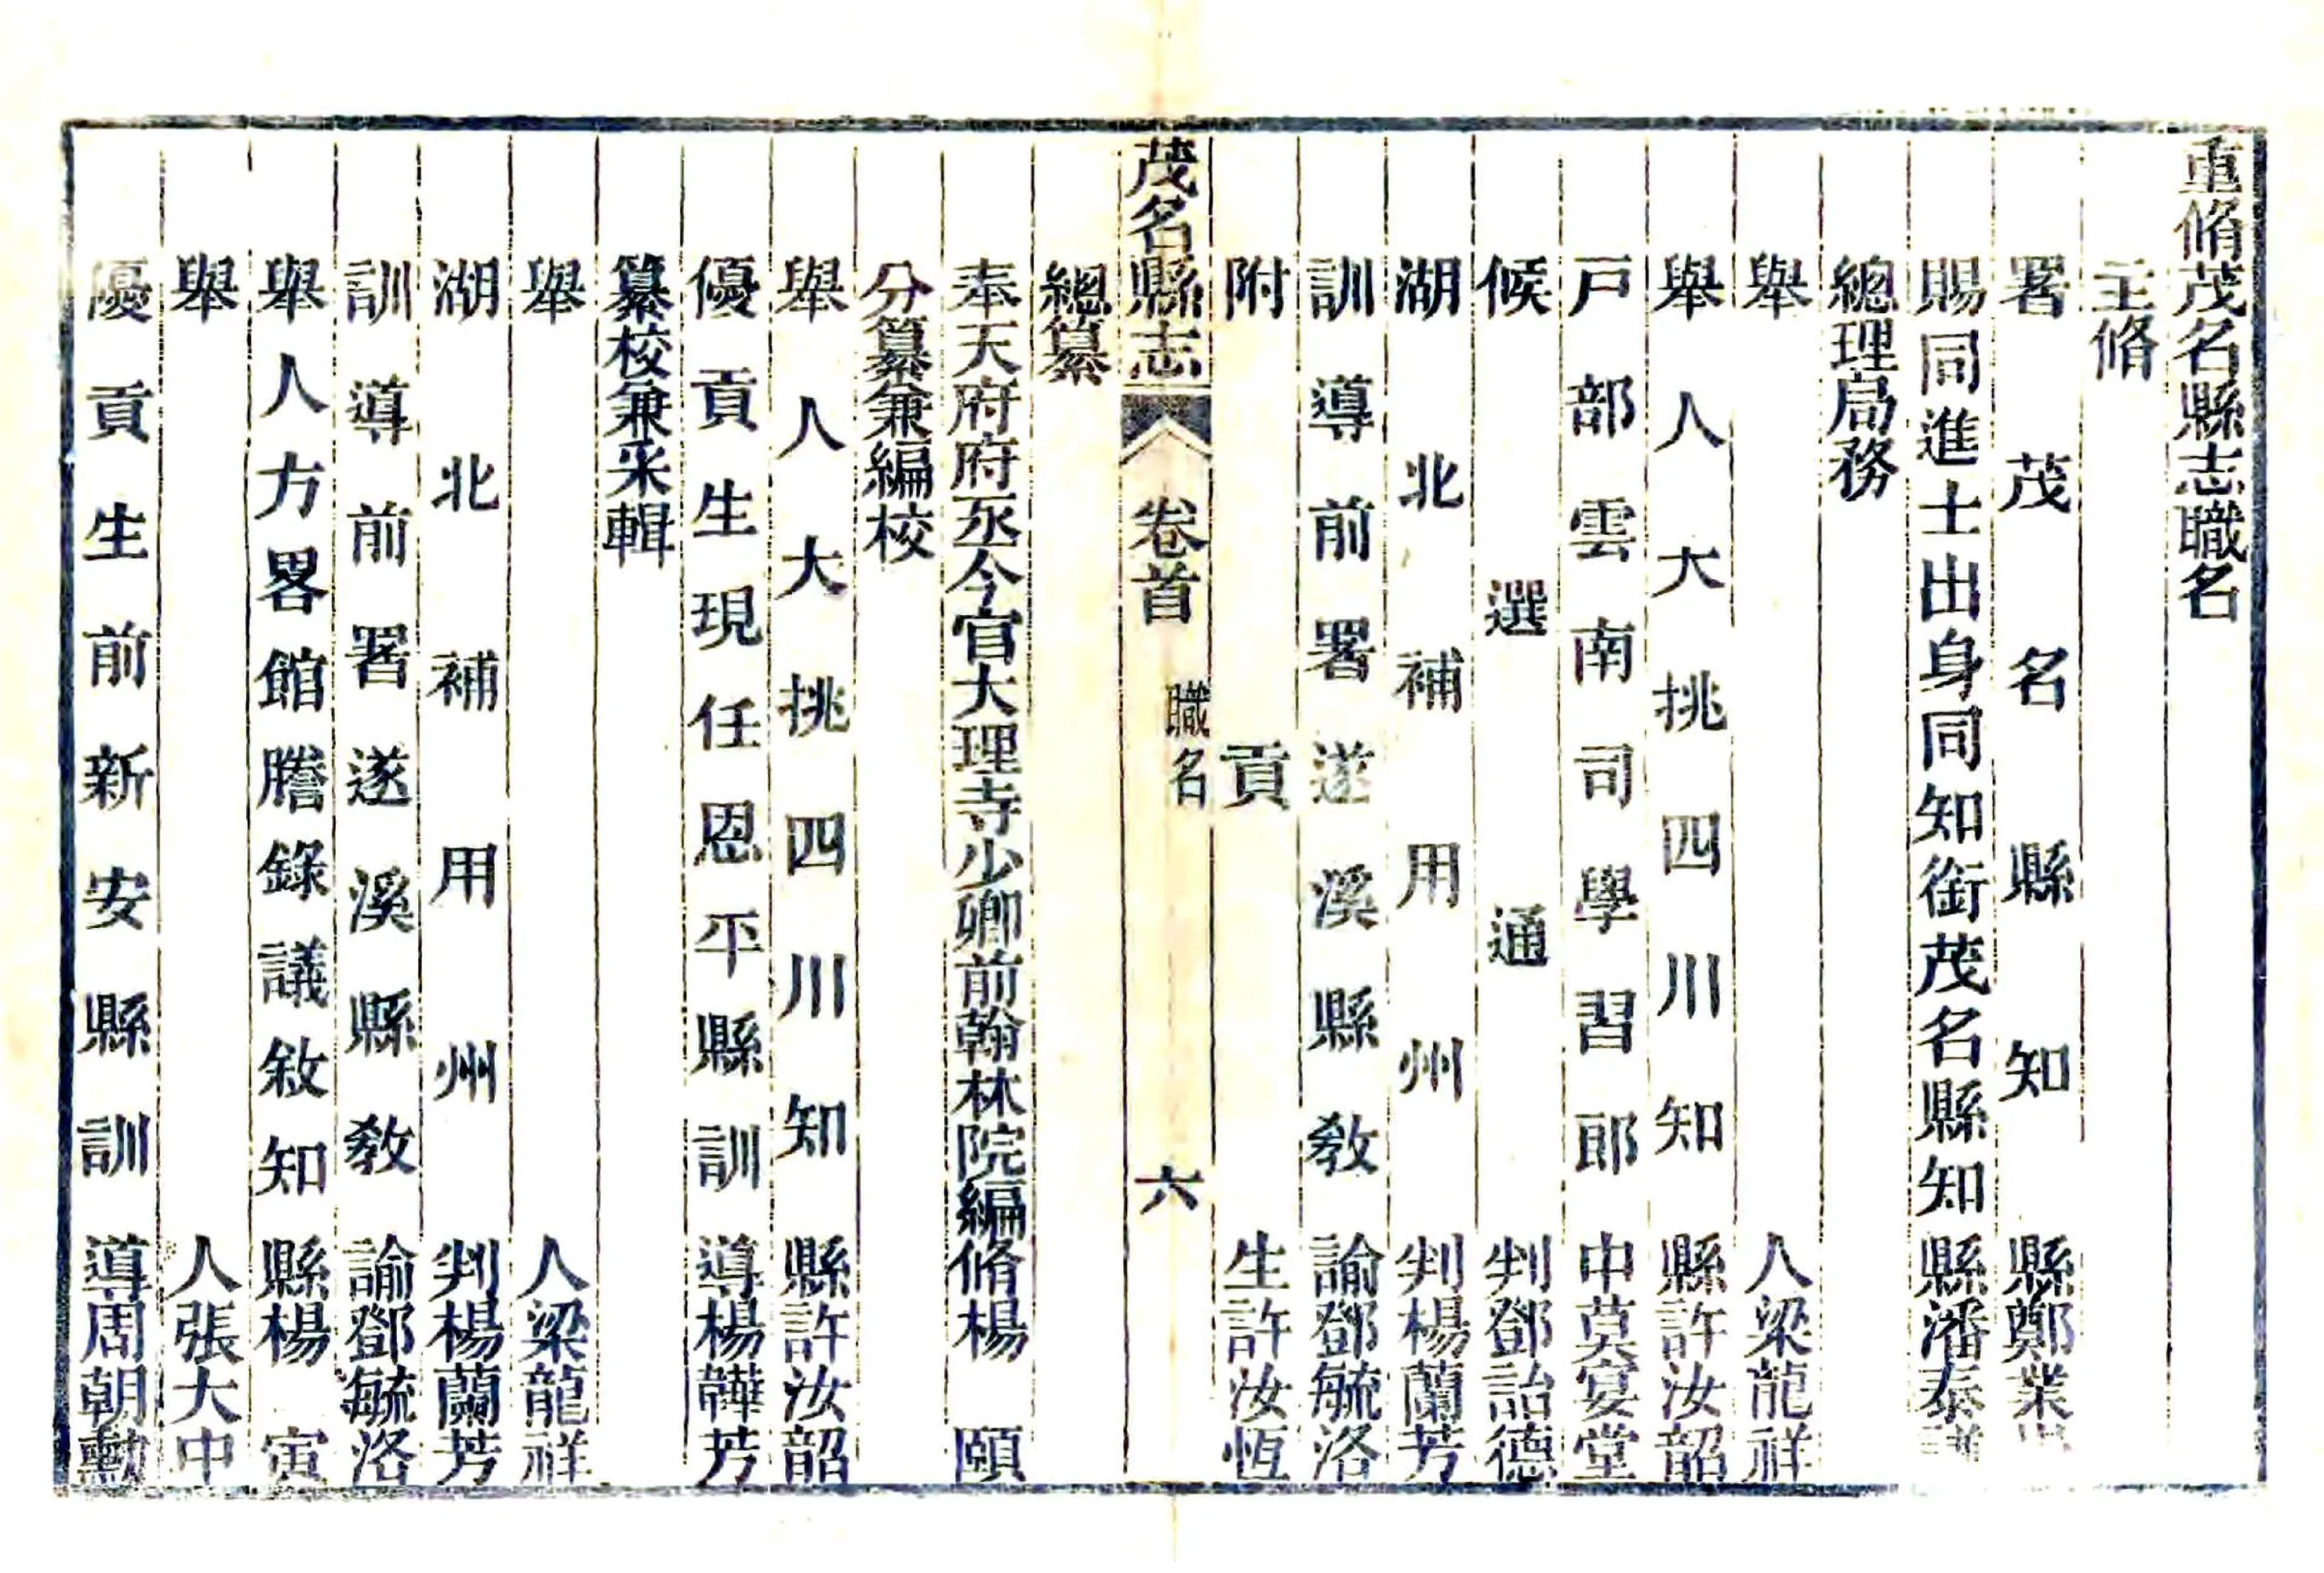 重脩茂名縣志職名
主脩
署茂名縣知縣鄭業
賜同進士出身同知銜茂名縣知縣潘泰
總理局務
舉人梁龍祥
舉人大挑四川知縣許汝韶
戸部雲南司學習郎中莫宴堂
候選通判鄧詒德
湖北補用州判楊蘭芳
訓導前署遂溪縣敎諭鄧毓洛
附貢生許汝恆
茂名縣志
卷首
職名
六
總纂
奉天府府丞今官大理寺少卿前翰林院編脩楊頤
分纂兼編校
舉人大挑四川知縣許汝韶
優貢生現任恩平縣訓導楊韡芳
纂校兼采輯
舉人梁龍祥
湖北補用州判楊蘭芳
訓導前署遂溪縣敎諭鄧毓洛
舉人方畧館謄錄議敘知縣楊寅
舉人張大中
優貢生前新安縣訓導周朝勳